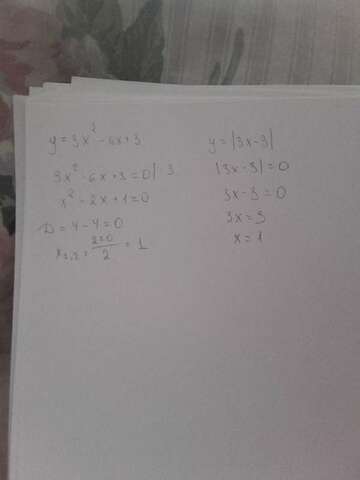 y=3x²-6x+3
3x²-6x+3=0| 3
x²-2x+1=0
D=4-4=0
x₁,₂=2±0/2=1
y=|3x-3|
|3x-3|=0
3x-3=0
3x=3
x=1